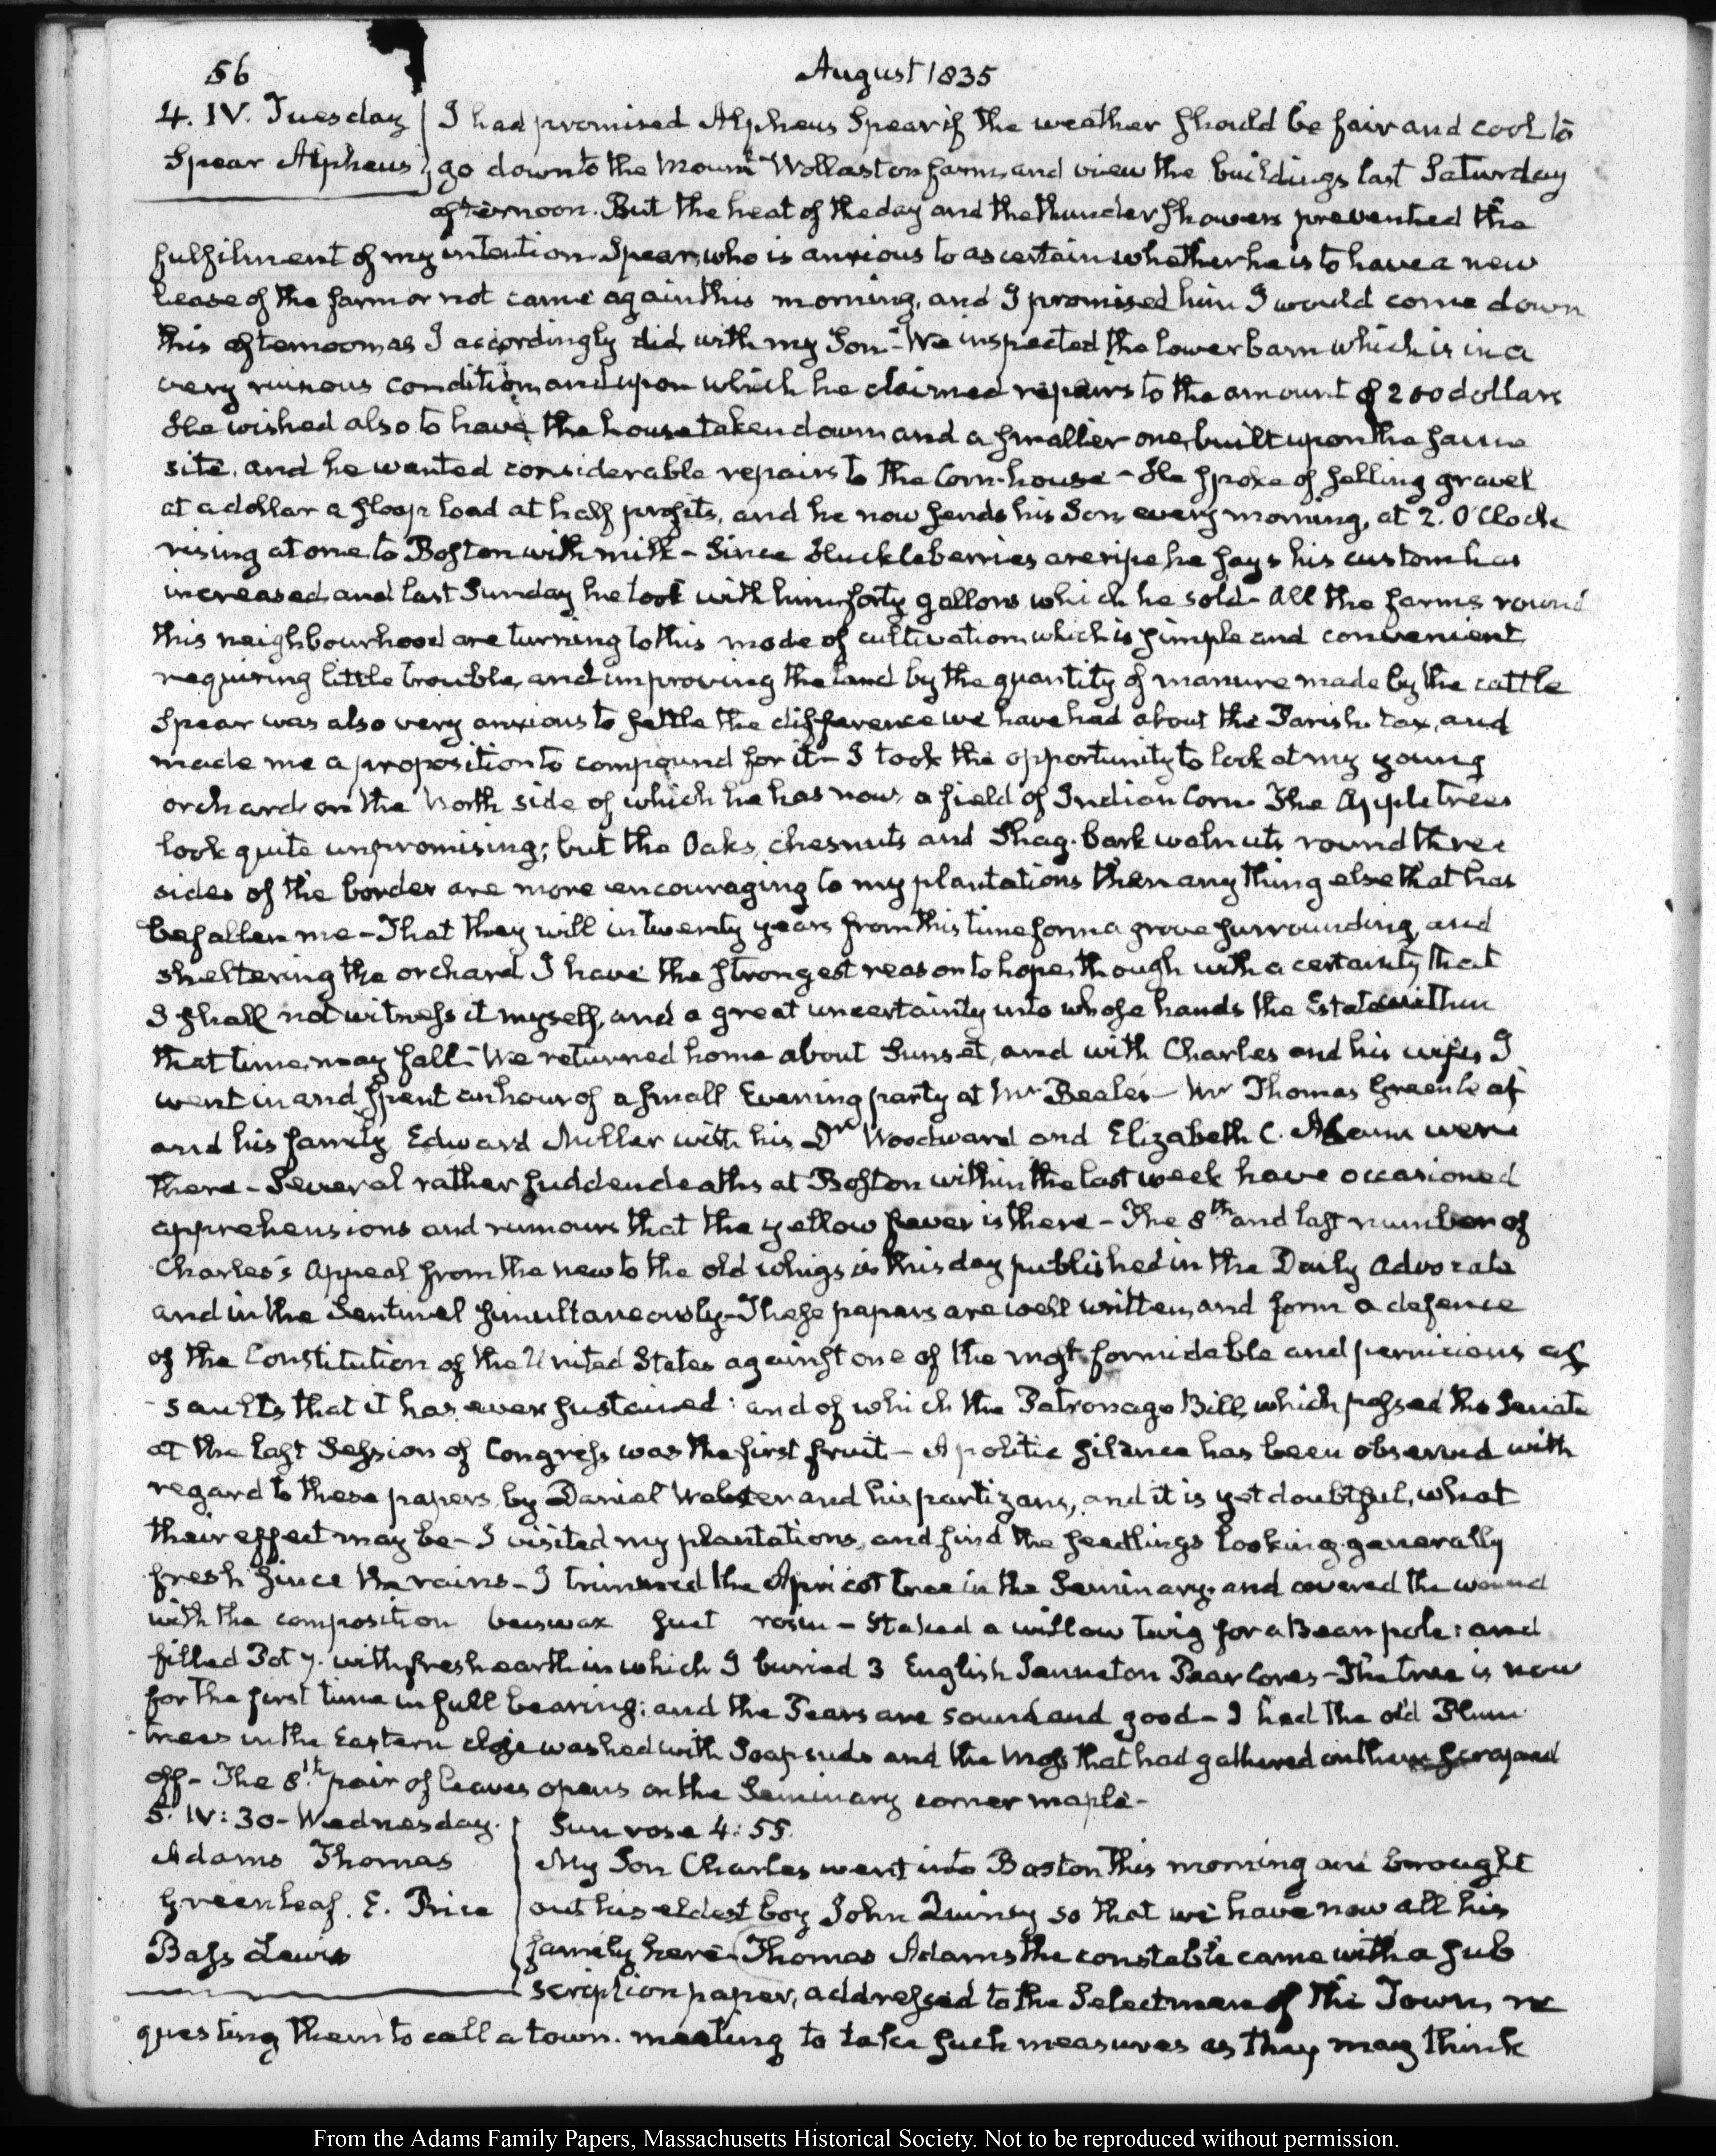 56
August 1835
4. IV. Tuesday
Spear Alpheus
I had promised Alpheus Spear if the weather should be fair and cool to
go down to the Mount Wollaston farm, and view the buildings last Saturday
afternoon. But the heat of the day and the thunder showers prevented the
fulfilment of my intention. Spear, who is anxious to ascertain whether he is to have a new
lease of the farm or not came again this morning, and I promised him I would come down
this afternoon, as I accordingly did, with my Son - We inspected the lower barn which is in a
very ruinous condition, and upon which he claimed repairs to the amount of 200 dollars
He wished also to have the house taken down and a smaller one, built upon the same
site, and he wanted considerable repairs to the Corn-house - He spoke of selling gravel
at a dollar a sloop load at half profits, and he now sends his Son every morning, at 2. O'Clock
rising at one, to Boston with milk - Since Huckleberries are ripe he says his custom has
increased, and last Sunday he took with him forty gallons which he sold - All the farms round
this neighbourhood are turning to this mode of cultivation, which is simple and convenient
requiring little trouble, and improving the land by the quantity of manure made by the cattle
Spear was also very anxious to settle the difference we have had about the Parish tax, and
made me a proposition to compound for it - I took the opportunity to look at my young
orchard on the North side of which he has now a field of Indian Corn. The Apple trees
look quite unpromising; but the Oaks, chesnuts and Shag-bark walnuts round three
sides of the border are more encouraging to my plantations than any thing else that has
befallen me - That they will in twenty years from this time form a grove surrounding, and
sheltering the orchard I have the strongest reason to hope, though with a certainty that
I shall not witness it myself, and a great uncertainty into whose hands the Estate within
that time, may fall - We returned home about Sunset, and with Charles and his wife, I
went in and spent an hour of a small Evening party at Mr Beale's - Mr Thomas Greenleaf
and his family Edward Miller with his Dr Woodward and Elizabeth C. Adams were
there - Several rather sudden deaths at Boston within the last week have occasioned
apprehensions and rumours that the yellow fever is there - The 8th and last number of
Charles's Appeal from the new to the old whigs is this day published in the Daily Advocate
and in the Sentinel simultaneously - These papers are well written, and form a defence
of the Constitution of the United States against one of the most formidable and pernicious as
saults that it has ever sustained: and of which the Patronage Bill, which passed the Senate
at the last Session of Congress was the first fruit - A politic silence has been observed with
regard to these papers, by Daniel Webster and his partizans, and it is yet doubtful, what
their effect may be - I visited my plantations, and find the seedlings looking generally
fresh since the rains - I trimmed the Apricot tree in the Seminary and covered the wound
with the composition beeswax suet rosin - Staked a willow twig for a Bean pole: and
filled Pot 7. with fresh earth in which I buried 3 English Pear Cores - The tree is now
for the first time in full bearing: and the Pears are sound and good - I had the old Plum
trees in the Eastern close washed with Soap suds and the Moss that had gathered on them scraped
off - The 8th pair of leaves opens on the Seminary corner maple -
5. IV:30 - Wednesday.
Adams Thomas
Greenleaf. E. Price
Bass Lewis
Sun rose 4:55.
My Son Charles went into Boston this morning and brought
out his eldest boy John Quincy so that we have now all his
family here - Thomas Adams the constable came with a sub
scription paper, addressed to the Selectmen of the Town, re
questing them to call a town-meeting to take such measures as they may think
From the Adams Family Papers, Massachusetts Historical Society. Not to be reproduced without permission.